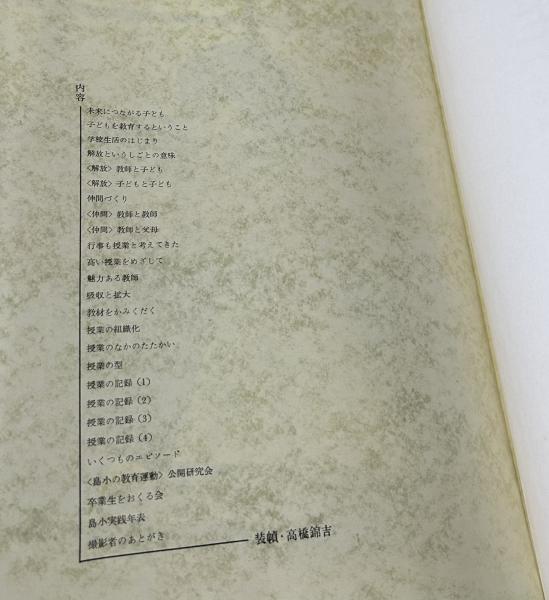 内容
未来につながる子ども
子どもを教育するということ
学校生活のはじまり
解放というしごとの意味
〈解放〉教師と子ども
〈解放〉子どもと子ども
仲間づくり
〈仲間〉教師と教師
〈仲間〉教師と父母
行事も授業と考えてきた
高い授業をめざして
魅力ある教師
吸収と拡大
教材をかみくだく
授業の組織化
授業のなかのたたかい
授業の型
授業の記録(1)
授業の記録(2)
授業の記録(3)
授業の記録(4)
いくつものエピソード
〈島小の教育運動〉公開研究会
卒業生をおくる会
島小実践年表
撮影者のあとがき
装幀・高橋錦吉